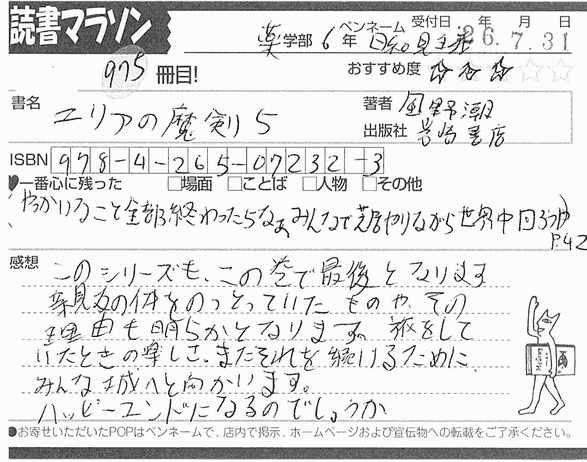 読書マラソン
ペンネーム 受付日 年 月 日
薬学部 6年 26.7.31
975冊目!
おすすめ度 ☆☆☆☆☆
書名 エリアの魔剣 5
著者 風野潮
出版社 岩崎書店
ISBN 978-4-265-07232-3
♥一番心に残った □場面 □ことば □人物 □その他
やっかいなこと全部終わったらなぁ みんなで芝居やりながら世界中回ろうや P.42
感想 このシリーズも、この巻で最後となります
親見友の体をのっとっていた ものや、その
理由も明らかとなります。旅をして
いたときの楽しさ、またそれを続けるために
みんな城へと向かいます。
ハッピーエンドになるのでしょうか
●お寄せいただいたPOPはペンネームで、店内で掲示、ホームページおよび宣伝物への転載をご了承ください。